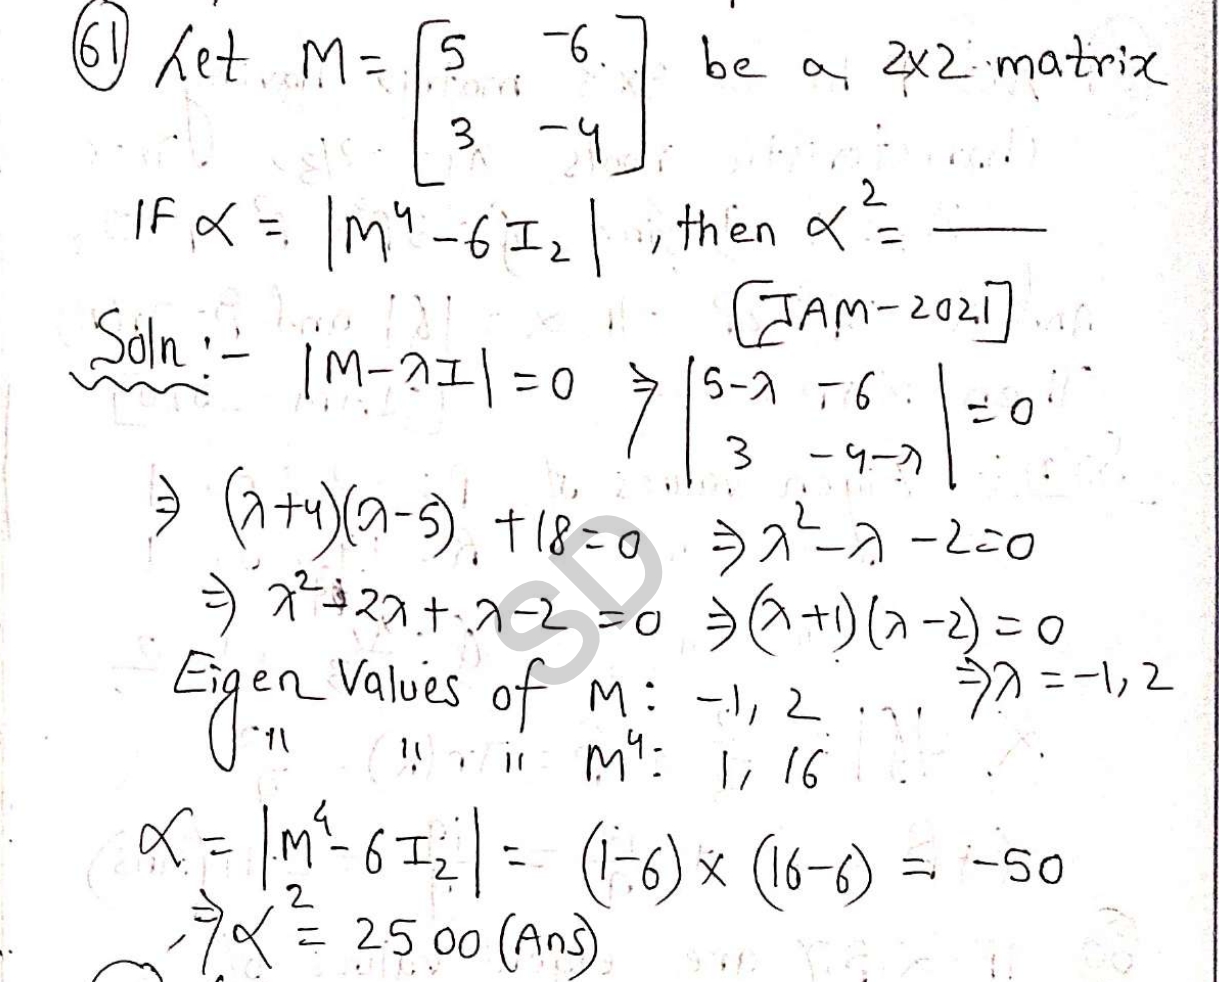 61 Let M = [5 -6
3 -4] be a 2x2 matrix
IF α = |M⁴ - 6I₂|, then α² = ___
[JAM-2021]
Soln :- |M-λI| = 0 ⇒ |5-λ -6
3 -4-λ| = 0
⇒ (λ+4)(λ-5) + 18 = 0 ⇒ λ² - λ - 2 = 0
⇒ λ² - 2λ + λ - 2 = 0 ⇒ (λ+1)(λ-2) = 0
⇒ λ = -1, 2
Eigen Values of M : -1, 2
" " " M⁴ : 1, 16
α = |M⁴ - 6I₂| = (1-6) x (16-6) = -50
⇒ α² = 2500 (Ans)
SD